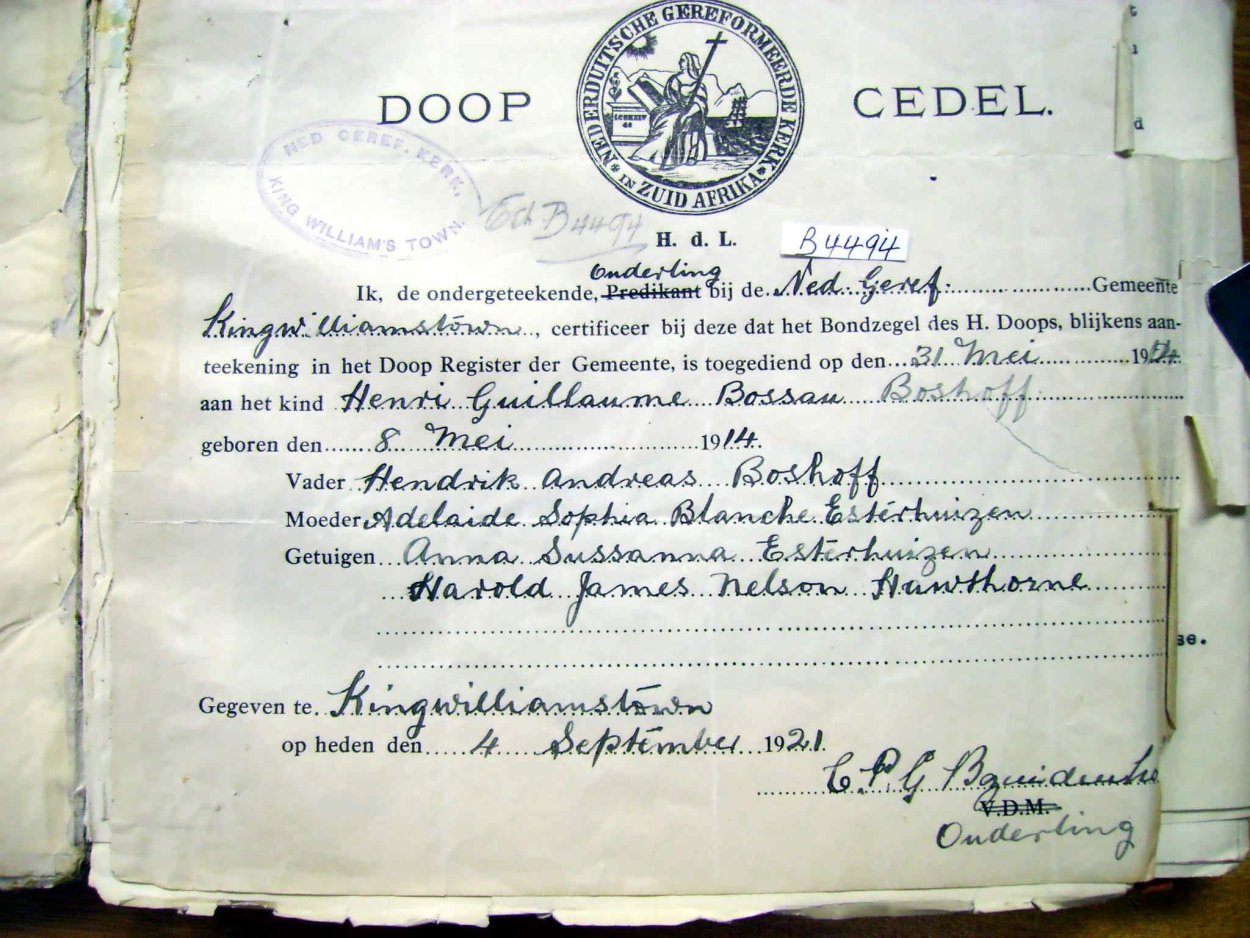 DOOP CEDEL.
NEDERDUITSCHE GEREFORMEERDE KERK
IN ZUID AFRIKA
NED GEREF. KERK,
KING WILLIAM'S TOWN.
B4494
H. d. L.
B4494
Onderling
Ik, de ondergeteekende, Predikant bij de Ned. Geref. Gemeente
Kingwilliamstown, certificeer bij deze dat het Bondzegel des H. Doops, blijkens aan-
teekening in het Doop Register der Gemeente, is toegediend op den 31 Mei 1914
aan het kind Henri Guillaume Bossau Boshoff
geboren den 8 Mei 1914.
Vader Hendrik Andreas Boshoff
Moeder Adelaide Sophia Blanche Esterhuizen
Getuigen Anna Sussanna Esterhuizen
Harold James Nelson Hawthorne
Gegeven te Kingwilliamstown
op heden den 4 September 1921.
C. P. G
V.D.M.
Onderling
se.